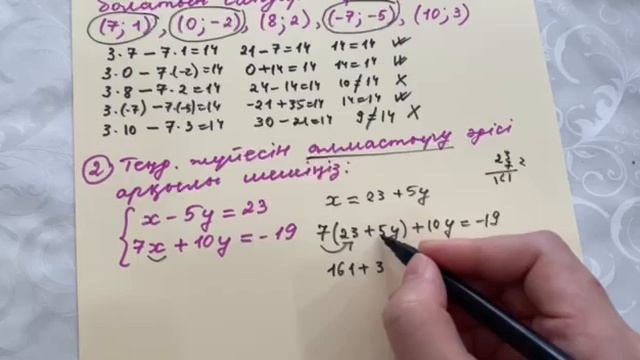 болатын
(7; 1), (10; -2), (8; 2), (-7; -5), (10; 3)
3·7 - 7·1=14 21-7=14 14=14 ✓
3·0 - 7·(-2)=14 0+14=14 14=14 ✓
3·8 - 7·2=14 24-14=14 10≠14 ✗
3·(-7) - 7·(-5)=14 -21+35=14 14=14 ✓
3·10 - 7·3=14 30-21=14 9≠14 ✗
② Теңд. жүйесін алмастыру әдісі
арқылы шешіңіз:
x - 5y = 23
7x + 10y = -19
x = 23 + 5y
7(23+5y)+10y=-19
161+3
23
7
161